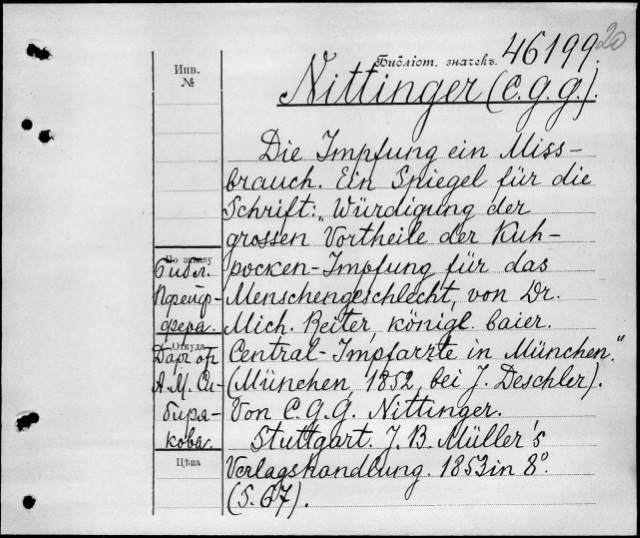 20
Библіот. значекъ. 46199.
Инв.
№
Nittinger (C.G.G.).
Die Impfung ein Miss-
brauch. Ein Spiegel für die
Schrift: „Würdigung der
grossen Vortheile der Kuh-
pocken-Impfung für das
Menschengeschlecht, von Dr.
Mich. Reiter, königl. baier.
Central-Impfarzte in München."
(München, 1852, bei J. Deschler).
Von C.G.G. Nittinger.
Stuttgart. J. B. Müller's
Verlagshandlung. 1853 in 8°.
(S. 67).
По заказу
Библ.
Пфейф-
фера.
Откуда
Даръ от
А. М. Си-
биря-
кова.
Цѣна